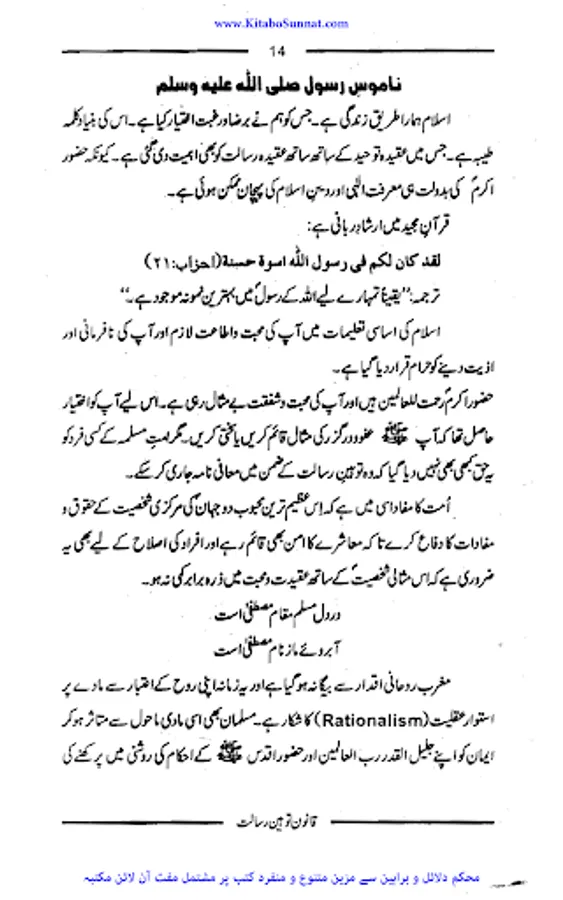 www.KitaboSunnat.com
14
ناموسِ رسول صلی اللّٰہ علیہ وسلم
اسلام ہمارا طریقِ زندگی ہے۔ جس کو ہم نے برضا ورغبت اختیار کیا ہے۔ اس کی بنیاد کلمہ
طیبہ ہے۔ جس میں عقیدہ توحید کے ساتھ ساتھ عقیدہ رسالت کو بھی اہمیت دی گئی ہے۔ کیونکہ حضور
اکرمؐ کی بدولت ہی معرفت الٰہی اور دینِ اسلام کی پہچان ممکن ہوئی ہے۔
قرآنِ مجید میں ارشادِ ربانی ہے:
لقد کان لکم فی رسول اللّٰہ اسوة حسنة (احزاب:۲۱)
ترجمہ: ''یقیناً تمہارے لیے اللہ کے رسولؐ میں بہترین نمونہ موجود ہے۔''
اسلام کی اساسی تعلیمات میں آپ کی محبت و اطاعت لازم اور آپ کی نافرمانی اور
اذیت دینے کو حرام قرار دیا گیا ہے۔
حضور اکرمؐ رحمت للعالمین ہیں اور آپ کی محبت و شفقت بے مثال رہی ہے۔ اس لیے آپ کو اختیار
حاصل تھا کہ آپ ﷺ عفو و درگزر کی مثال قائم کریں یا سختی کریں۔ مگر امتِ مسلمہ کے کسی فرد کو
یہ حق کبھی بھی نہیں دیا گیا کہ وہ توہینِ رسالت کے ضمن میں معافی نامہ جاری کر سکے۔
اُمت کا مفاد اسی میں ہے کہ اس عظیم ترین محبوبِ دو جہاںؐ کی مرکزی شخصیت کے حقوق و
مفادات کا دفاع کرے تاکہ معاشرے کا امن بھی قائم رہے اور افراد کی اصلاح کے لیے بھی یہ
ضروری ہے کہ اس مثالی شخصیتؐ کے ساتھ عقیدت و محبت میں ذرہ برابر کمی نہ ہو۔
در دل مسلم مقام مصطفیٰؐ است
آبروئے ما ز نام مصطفیٰؐ است
مغرب روحانی اقدار سے بیگانہ ہو گیا ہے اور یہ زمانہ اپنی روح کے اعتبار سے مادے پر
استوار عقلیت (Rationalism) کا شکار ہے۔ مسلمان بھی اسی مادی ماحول سے متاثر ہو کر
ایمان کو اپنے جلیل القدر رب العالمین اور حضور اقدس ﷺ کے احکام کی روشنی میں پرکھنے کی
قانونِ توہین رسالت
محکم دلائل و براہین سے مزین متنوع و منفرد کتب پر مشتمل مفت آن لائن مکتبہ